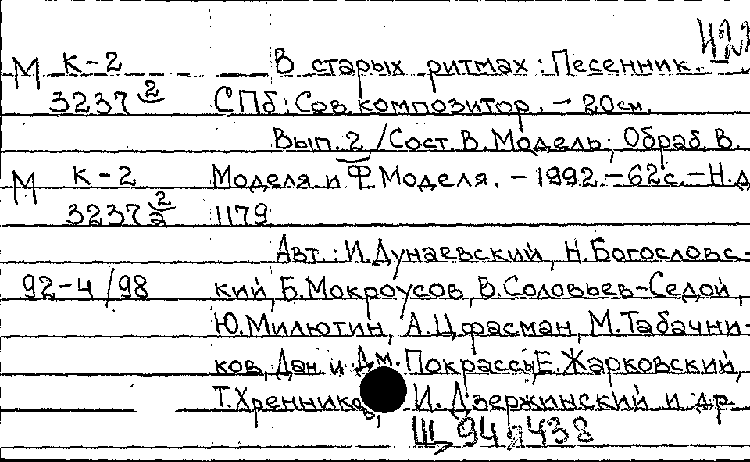 422
М К-2 В старых ритмах: Песенник. –
3237 2 СПб: Сов. композитор. – 20 см.
Вып. 2 / Сост. В. Модель; Обраб. В.
М К-2 Моделя и Ф. Моделя. – 1992. – 62 с. – Н.д.
3237 2/2 1179
Авт.: И. Дунаевский, Н. Богословс-
92-4/98 кий, Б. Мокроусов, В. Соловьев-Седой,
Ю. Милютин, А. Цфасман, М. Табачни-
ков, Дан. и Дм. Покрассы, Е. Жарковский,
Т. Хренников, И. Дзержинский и др.
Щ 949438